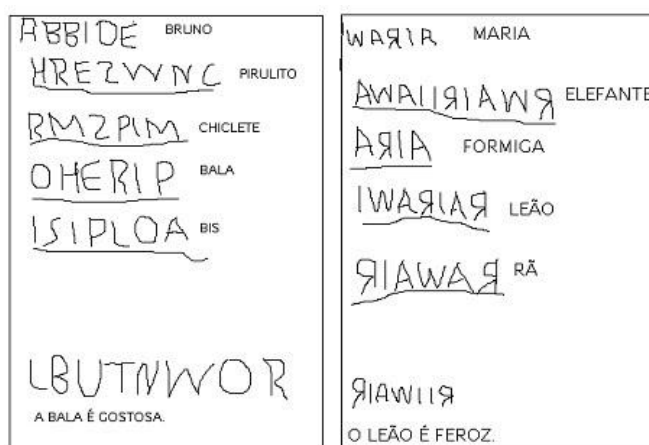 ABBIDE BRUNO
HREZWNC PIRULITO
RMZPIM CHICLETE
OHERIP BALA
ISIPLOA BIS
LBUTNWOR
A BALA É GOSTOSA.
WAЯIA MARIA
AWAIIЯIAWЯ ELEFANTE
AЯIA FORMIGA
IWAЯIAЯ LEÃO
ЯIAWAЯ RÃ
ЯIAWIIЯ
O LEÃO É FEROZ.